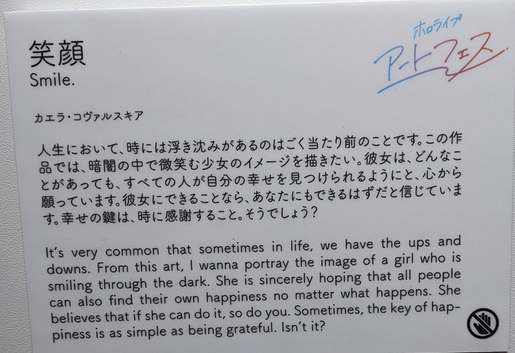 笑顔
Smile.
ホロライブ
アートフェス
カエラ・コヴァルスキア
人生において、時には浮き沈みがあるのはごく当たり前のことです。この作
品では、暗闇の中で微笑む少女のイメージを描きたい。彼女は、どんなこ
とがあっても、すべての人が自分の幸せを見つけられるようにと、心から
願っています。彼女にできることなら、あなたにもできるはずだと信じていま
す。幸せの鍵は、時に感謝すること。そうでしょう?
It's very common that sometimes in life, we have the ups and
downs. From this art, I wanna portray the image of a girl who is
smiling through the dark. She is sincerely hoping that all people
can also find their own happiness no matter what happens. She
believes that if she can do it, so do you. Sometimes, the key of hap-
piness is as simple as being grateful. Isn't it?